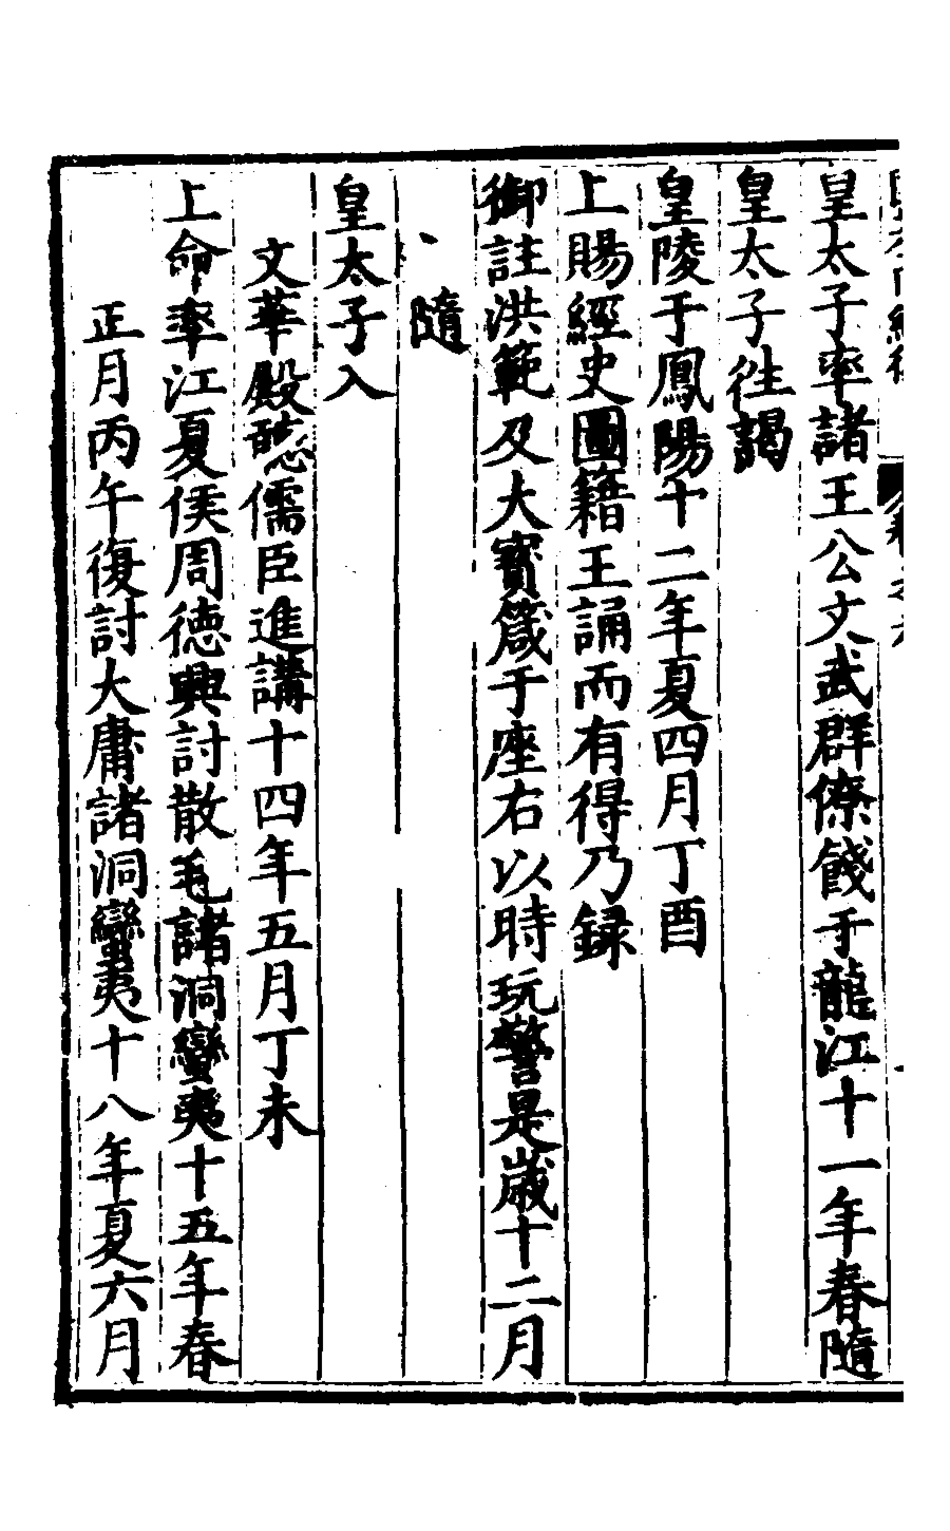 皇太子率諸王公文武群僚餞于龍江十一年春隨
皇太子徃謁
皇陵于鳳陽十二年夏四月丁酉
上賜經史圖籍王誦而有得乃録
御註洪範及大寳箴于座右以時玩警是歳十二月
隨
皇太子入
文華殿聽儒臣進講十四年五月丁未
上命率江夏侯周徳興討散毛諸洞蠻夷十五年春
正月丙午復討大庸諸洞蠻夷十八年夏六月